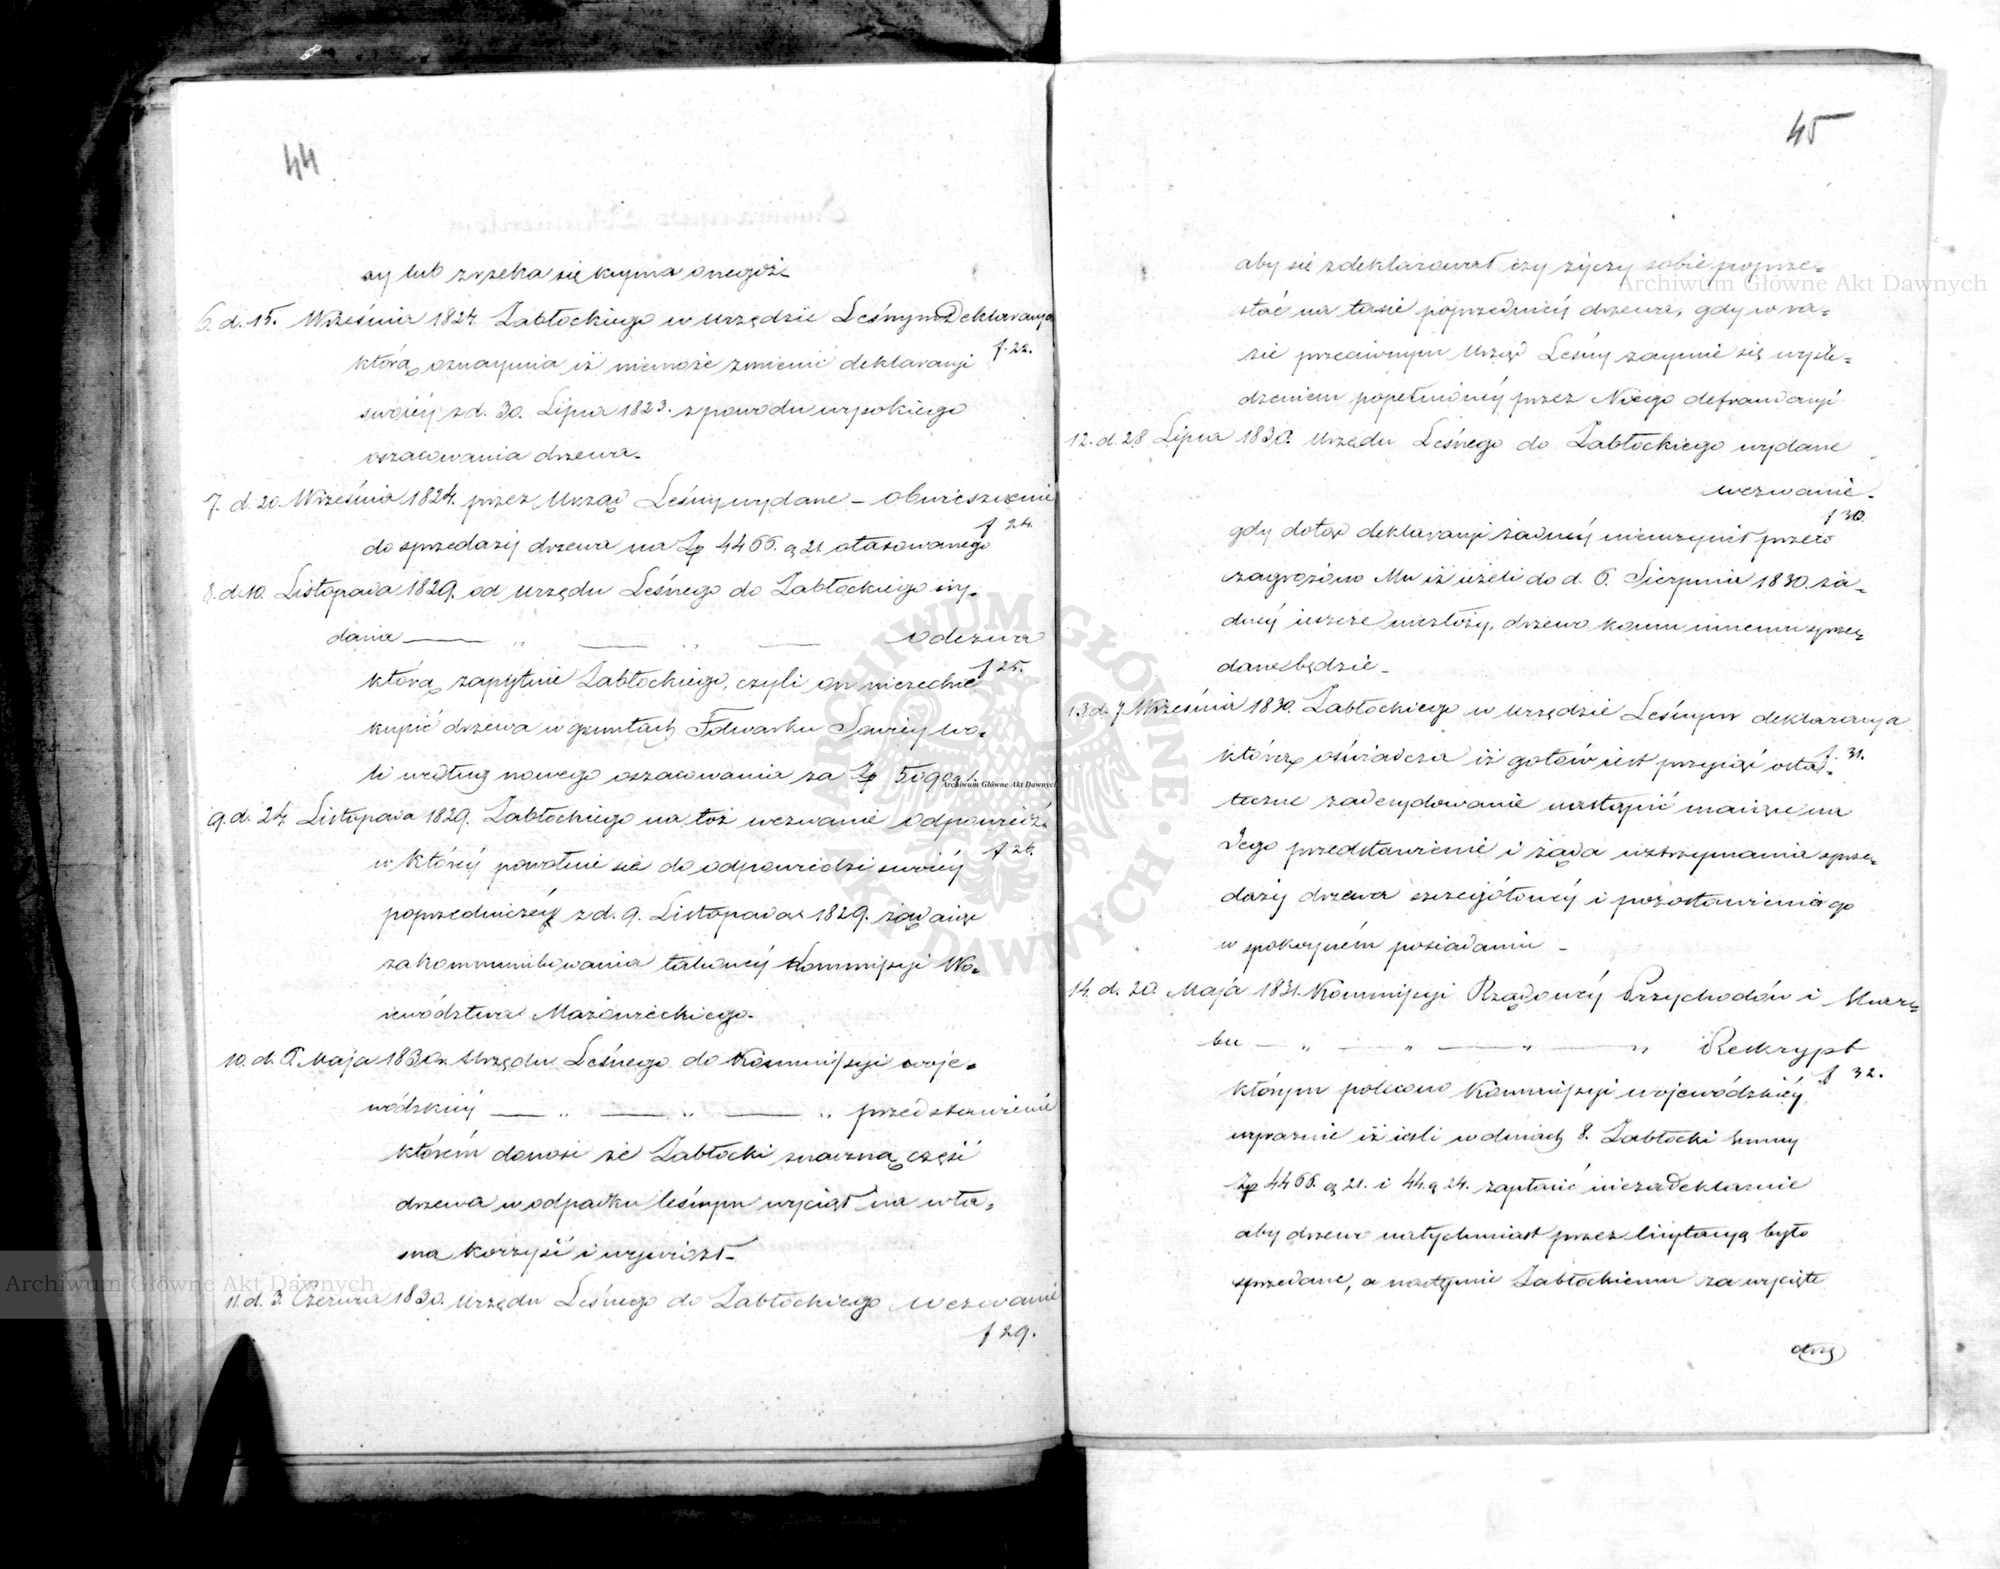 44
sy lub zrzeka się kupna onegoż
6. d. 15. Września 1824. Zabłockiego w urzędzie Leśnym Deklaracya
f. 22.
którą oznaymia iż niemoże zmienić deklaracyi
swoiéy z d. 30. Lipca 1823. z powodu wysokiego
oszacowania drzewa.
7. d. 20. Września 1824. przez Urząd Leśny wydane – obwieszczenie
f 24.
do sprzedaży drzewa na Zp 4466. g 21 otaxowanego
8. d. 10. Listopada 1829. od Urzędu Leśnego do Zabłockiego wy-
dania — „ — „ — odezwa
f 25.
którą zapytuie Zabłockiego, czyli on niezechce
kupić drzewa w gruntach Folwarku Saviey wo-
li według nowego oszacowania za Zp
Archiwum Główne Akt Dawnych
9. d. 24. Listopada 1829. Zabłockiego na toż wezwanie odpowiedź
f 26.
w któréy powołuie się do odpowiedzi swoiéy
poprzedniczéy z d. 9. Listopada 1829. żądaiąc
zakommunikowania takowéy Kommissyi Wo-
iewództwa Mazowieckiego.
10. d. 5. Maja 1830. Urzędu Leśnego do Kommissyi woje-
wódzkiéy — „ — „ — „ przedstawienie
którém donosi że Zabłocki znaczną część
drzewa w odpadku leśnym wyciął na wła-
sna korzyść i wywiózł.
11. d. 3. Czerwca 1830. Urzędu Leśnego do Zabłockiego wezwanie
f 29.
45
aby się zdeklarował czy życzy sobie poprze-
stać na taxie poprzedniéy drzewa, gdy w ra-
zie przeciwnym Urząd Leśny zaymie się wyśle-
dzeniem popełnionéy przez Niego defraudacyi
12. d. 28 Lipca 1830. Urzędu Leśnego do Zabłockiego wydane
wezwanie.
f 30.
gdy dotąd deklaracyi żadnéy nieuczynił przeto
zagrożono Mu iż ieżeli do d. 6. Sierpnia 1830. ża-
dnéy ieszcze niezłoży, drzewo komu innemu sprze-
dane będzie.
13. d. 7. Września 1830. Zabłockiego w urzędzie Leśnym deklaracya
f. 31.
którą oświadcza iż gotów iest przyiąć osta-
teczne zadecydowanie nastąpić maiące na
Jego przedstawienie i żąda wstrzymania sprze-
daży drzewa szczegółowéy i pozostawienia go
w spokoyném posiadaniu –
14. d. 20. Maja 1831. Kommissyi Rządowéy Przychodów i Skar-
bu — „ — „ — „ — „ Reskrypt
f 32.
którym polecono Kommissyi wojewódzkiéy
wyraźnie iż ieśli w dniach 8. Zabłocki summy
Zp 4466. g 21. i 44. g 24. zapłacić niezadeklaruie
aby drzewo natychmiast przez licytacyą było
sprzedane, a następnie Zabłockiemu za wycięte
drzę
Archiwum Główne Akt Dawnych
Archiwum Główne Akt Dawnych
ARCHIWUM GŁÓWNE AKT DAWNYCH